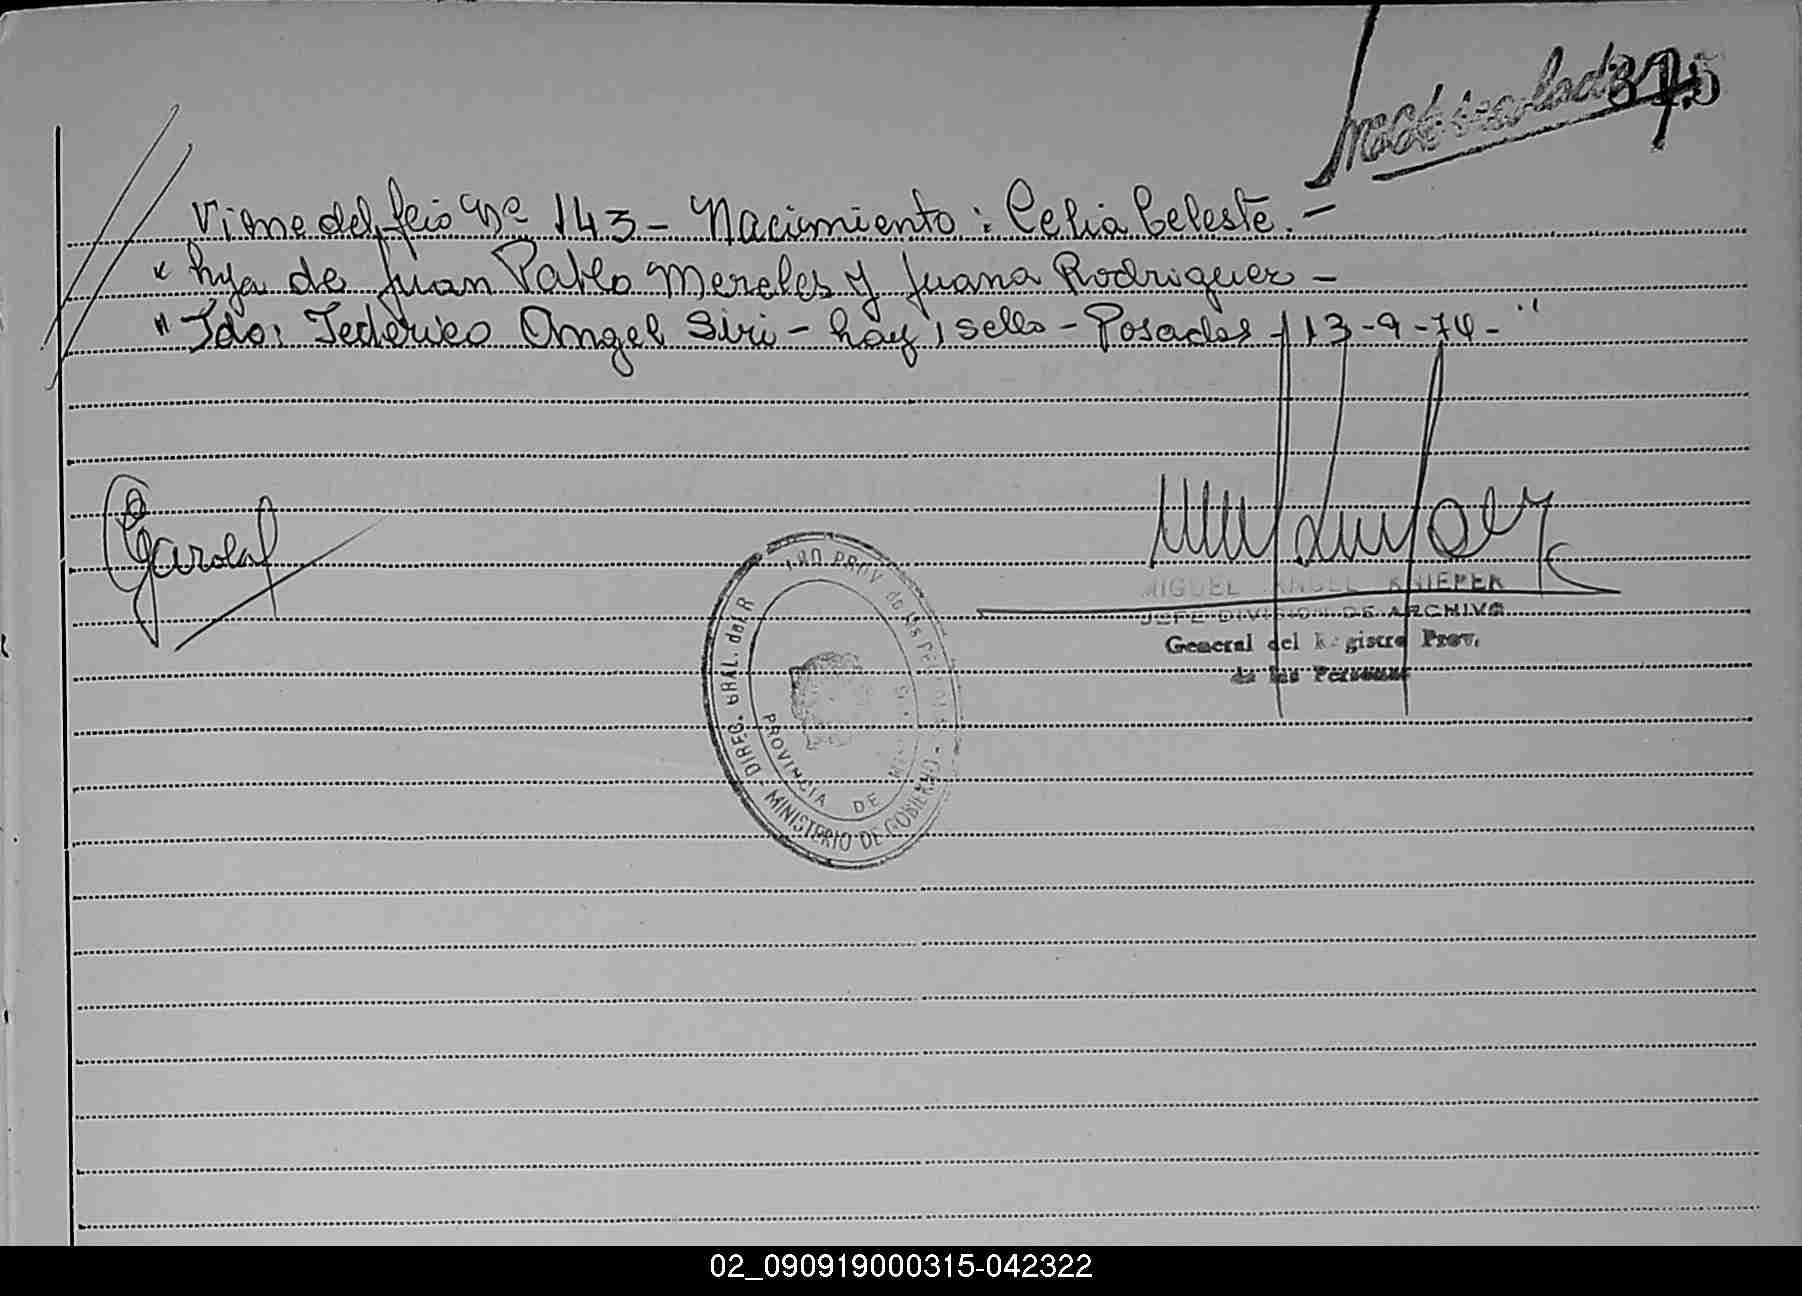 Matriculada
315
Viene del folio Nº 143 - Nacimiento: Celia Celeste. -
" hija de Juan Pablo Mereles y Juana Rodriguez -
" Fdo: Federico Angel Siri - hay 1 sello - Posadas - 13-9-74- "
MIGUEL ANGEL KNIEPER
JEFE DIVISION DE ARCHIVO
General del Registro Prov.
de las Personas
DIREC. GRAL. del R PROV de las PE
PROVINCIA DE
MINISTERIO DE GOBIERNO -
02_090919000315-042322